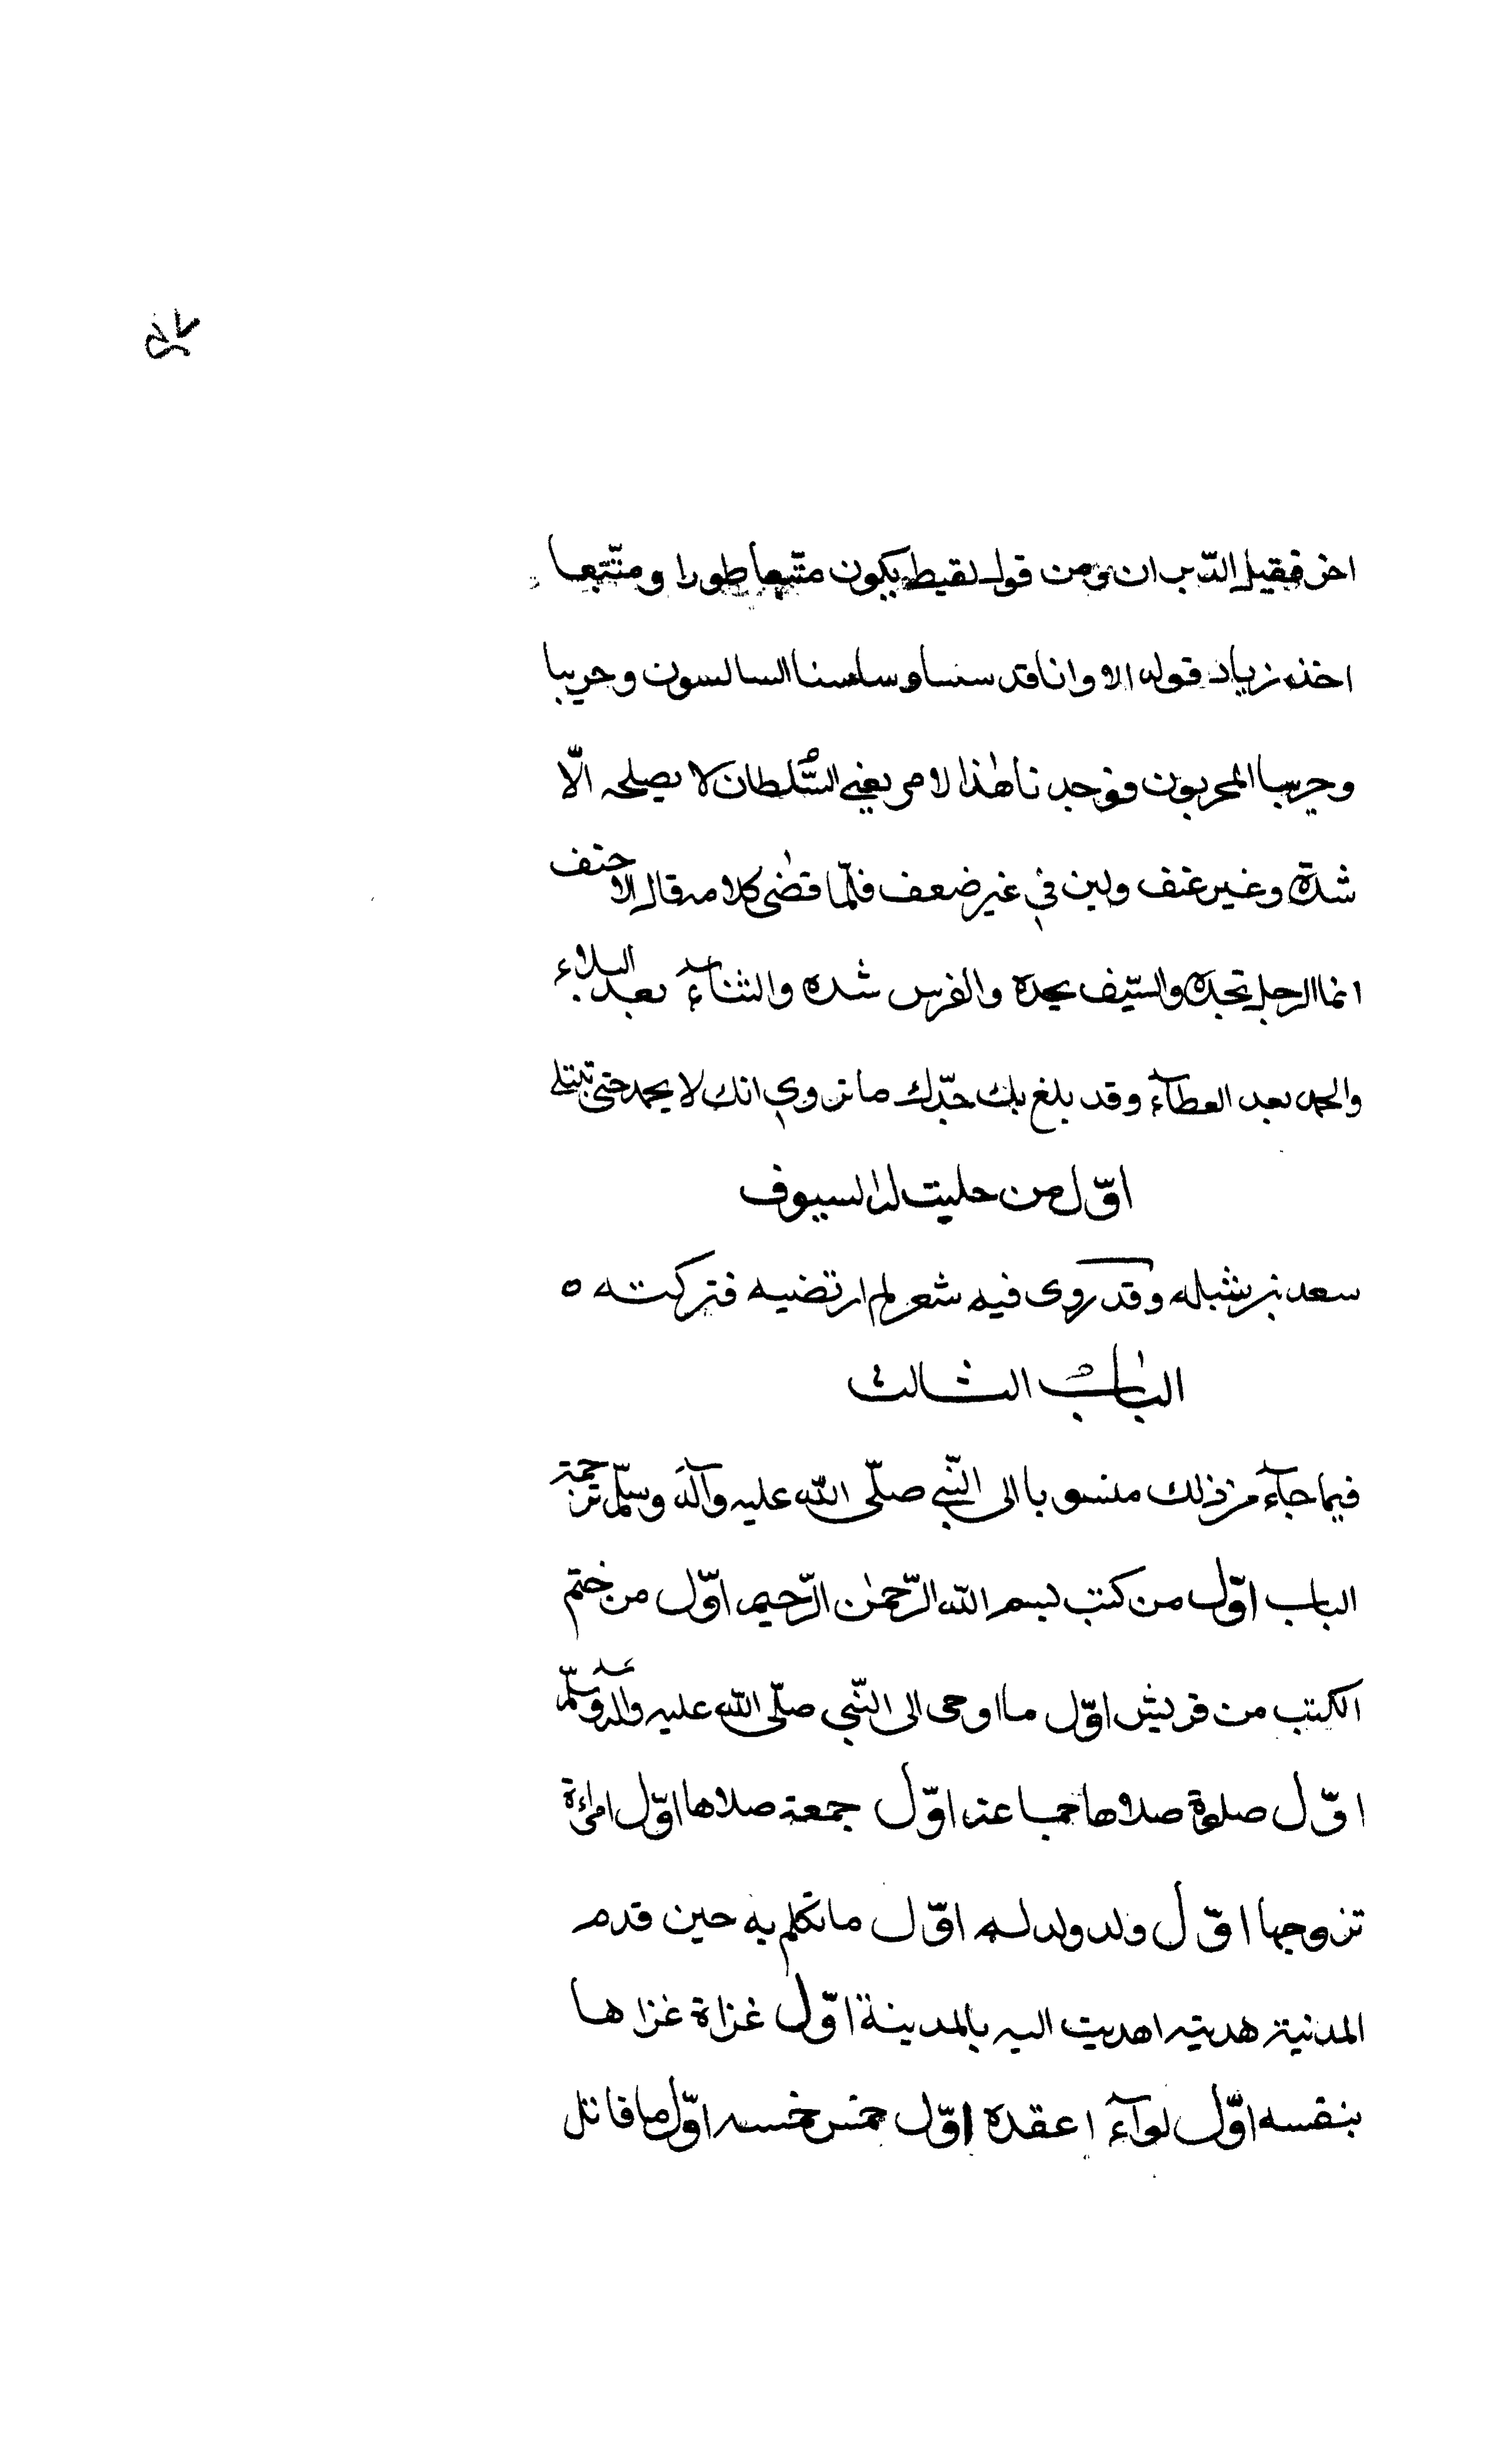 اخر فقيل الدبران ومن قول لقيط يكون متبعا طورا ومتّبعا
اخذه زياد قوله الا وانا قد سسنا وساسنا السالسون وجربنا
وجربنا المجربون فوجدنا هذا الامر يعني السُّلطان لا يصلحه الّا
شدة وغير عنف ولين في غير ضعف فلمّا قضى كلامه قال الاحنف
انما الرجل بجده والسّيف بحده والفرس شده والثنآء بعد البلاء
والحمد بعد العطآء وقد بلغ بك جدّك ما تروي انك لا يحمد حتى تبتلى
اوّل من حليت له السيوف
سعد بن شبله وقد روى فيه شعر لم ارتضيه فتركته ه
الباب الثالث
فيما جآء من ذلك منسوبا الى النّبي صلّى الله عليه وآله وسلّم ترجمة
الباب اوّل من كتب بسم الله الرّحمٰن الرّحيم اوّل من ختم
الكتب من قريش اوّل ما اوحى الى النّبي صلّى الله عليه وآله وسلّم
اوّل صلوة صلاها جماعة اوّل جمعة صلاها اوّل امرءة
تزوجها اوّل ولد ولد له اوّل ما تكلم به حين قدم
المدنية هدية اهديت اليه بالمدينة اوّل غزاة غزاها
بنفسه اوّل لوآء اعقده اوّل خمس خمسه اوّل ما قاتل